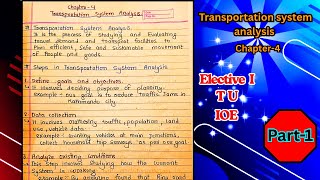 Chapter-4
Transportation System Analysis
Transportation System Analysis
It is the process of studying and Evaluating
travel demand and transport facilities to
Plan efficient, safe and Sustainable movement
of People and goods.
Steps in Transportation System Analysis
1. Define goals and objectives.
It involves deciding purpose of planning.
example: our goal is to reduce traffic Jams in
Kathmandu city
2. Data collection
It involves collecting traffic, population, land
use, vehicle data.
example: counting vehicles at main junctions,
collect household trip surveys as per our goal
3. Analyze existing conditions
This step means studying how the current
System is working.
example: By analyzing found that Ring road
Transportation system
analysis
Chapter-4
Elective I
T U
IOE
Part-1